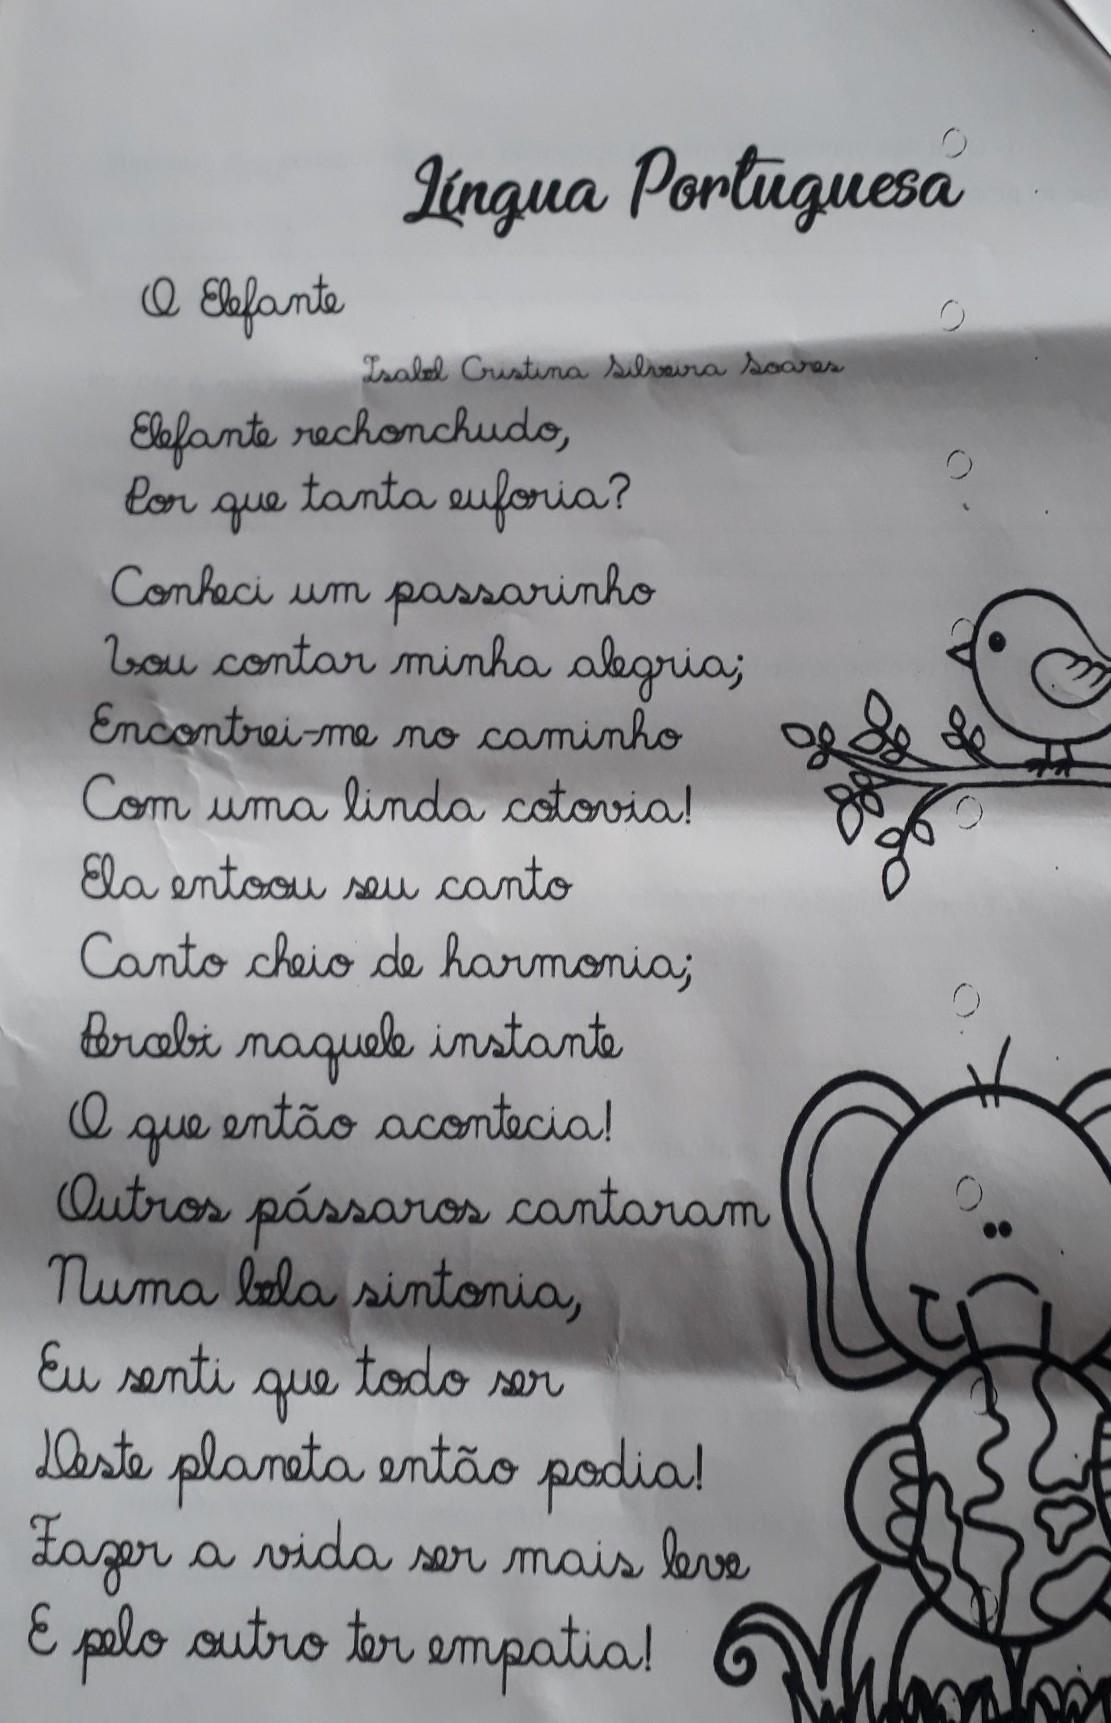 Língua Portuguesa
O Elefante
Isabel Cristina Silveira Soares
Elefante rechonchudo,
Por que tanta euforia?
Conheci um passarinho
Vou contar minha alegria;
Encontrei-me no caminho
Com uma linda cotovia!
Ela entoou seu canto
Canto cheio de harmonia;
Percebi naquele instante
O que então acontecia!
Outros pássaros cantaram
Numa bela sintonia,
Eu senti que todo ser
Deste planeta então podia!
Fazer a vida ser mais leve
E pelo outro ter empatia!